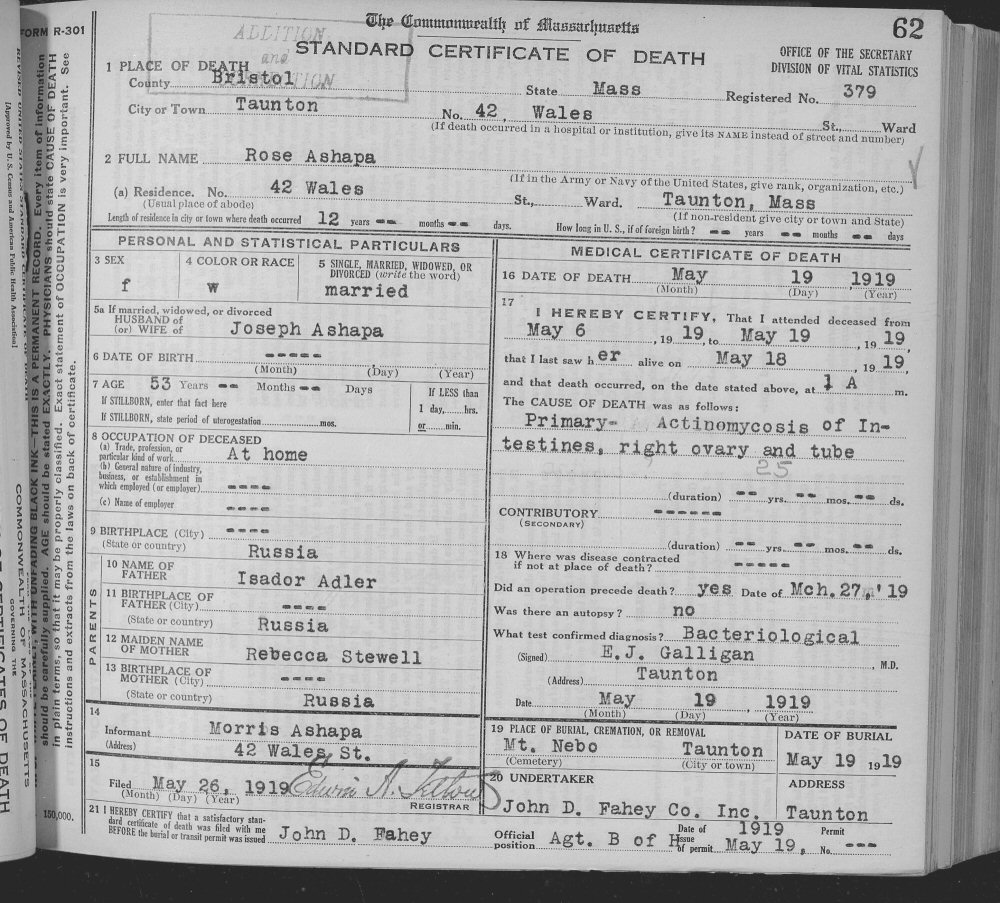 FORM R-301
The Commonwealth of Massachusetts
62
ADDITION
and
STANDARD CERTIFICATE OF DEATH
OFFICE OF THE SECRETARY
DIVISION OF VITAL STATISTICS
1 PLACE OF DEATH
County Bristol State Mass Registered No. 379
City or Town Taunton No. 42, Wales St., Ward
(If death occurred in a hospital or institution, give its NAME instead of street and number)
2 FULL NAME Rose Ashapa
(If in the Army or Navy of the United States, give rank, organization, etc.)
(a) Residence. No. 42 Wales St., Ward. Taunton, Mass
(Usual place of abode) (If non-resident give city or town and State)
Length of residence in city or town where death occurred 12 years -- months -- days. How long in U. S., if of foreign birth? -- years -- months -- days
PERSONAL AND STATISTICAL PARTICULARS
3 SEX 4 COLOR OR RACE 5 SINGLE, MARRIED, WIDOWED, OR
DIVORCED (write the word)
f w married
5a If married, widowed, or divorced
HUSBAND of
(or) WIFE of Joseph Ashapa
6 DATE OF BIRTH -----
(Month) (Day) (Year)
7 AGE 53 Years -- Months -- Days If LESS than
If STILLBORN, enter that fact here 1 day, hrs.
If STILLBORN, state period of uterogestation mos. or min.
8 OCCUPATION OF DECEASED
(a) Trade, profession, or
particular kind of work At home
(b) General nature of industry,
business, or establishment in
which employed (or employer) ----
(c) Name of employer ----
9 BIRTHPLACE (City) ----
(State or country) Russia
PARENTS
10 NAME OF
FATHER Isador Adler
11 BIRTHPLACE OF
FATHER (City) ----
(State or country) Russia
12 MAIDEN NAME
OF MOTHER Rebecca Stewell
13 BIRTHPLACE OF
MOTHER (City) ----
(State or country) Russia
14
Informant Morris Ashapa
(Address) 42 Wales St.
15
Filed May 26, 1919 Edwin A. Tetlow
(Month) (Day) (Year) REGISTRAR
MEDICAL CERTIFICATE OF DEATH
16 DATE OF DEATH May 19 1919
(Month) (Day) (Year)
17
I HEREBY CERTIFY, That I attended deceased from
May 6, 1919, to May 19, 1919,
that I last saw her alive on May 18, 1919,
and that death occurred, on the date stated above, at 1 A m.
The CAUSE OF DEATH was as follows:
Primary- Actinomycosis of In-
testines, right ovary and tube
25
(duration) -- yrs. -- mos. -- ds.
CONTRIBUTORY ------
(SECONDARY)
(duration) -- yrs. -- mos. -- ds.
18 Where was disease contracted
if not at place of death? -----
Did an operation precede death? yes Date of Mch. 27, '19
Was there an autopsy? no
What test confirmed diagnosis? Bacteriological
(Signed) E.J. Galligan, M.D.
(Address) Taunton
Date May 19 1919
(Month) (Day) (Year)
19 PLACE OF BURIAL, CREMATION, OR REMOVAL DATE OF BURIAL
Mt. Nebo Taunton May 19 1919
(Cemetery) (City or town)
20 UNDERTAKER ADDRESS
John D. Fahey Co. Inc. Taunton
21 I HEREBY CERTIFY that a satisfactory stan-
dard certificate of death was filed with me
BEFORE the burial or transit permit was issued John D. Fahey
Official position Agt. B of H Date of issue of permit May 19, 1919 Permit No. ---
150,000.
[Approved by U. S. Census and American Public Health Association]
should be carefully supplied. AGE should be stated EXACTLY. PHYSICIANS should state CAUSE OF DEATH
in plain terms, so that it may be properly classified. Exact statement of OCCUPATION is very important. See
instructions and extracts from the laws on back of certificate.
COMMONWEALTH OF MASSACHUSETTS
GOVERNING THE
CERTIFICATES OF DEATH